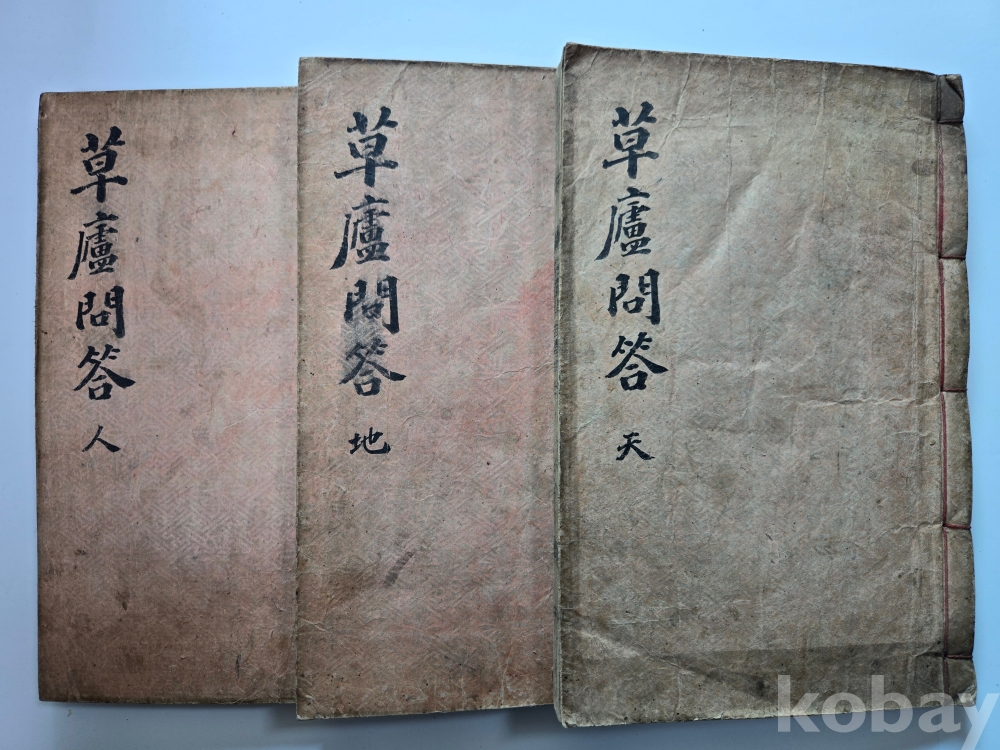 草廬問答 天
草廬問答 地
草廬問答 人
kobay